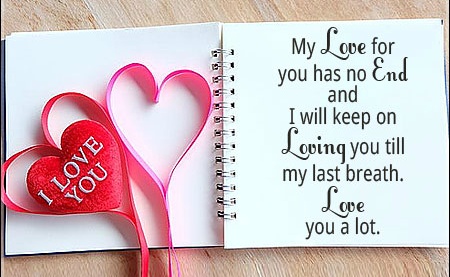 I LOVE
YOU
My Love for
you has no End
and
I will keep on
Loving you till
my last breath.
Love
you a lot.